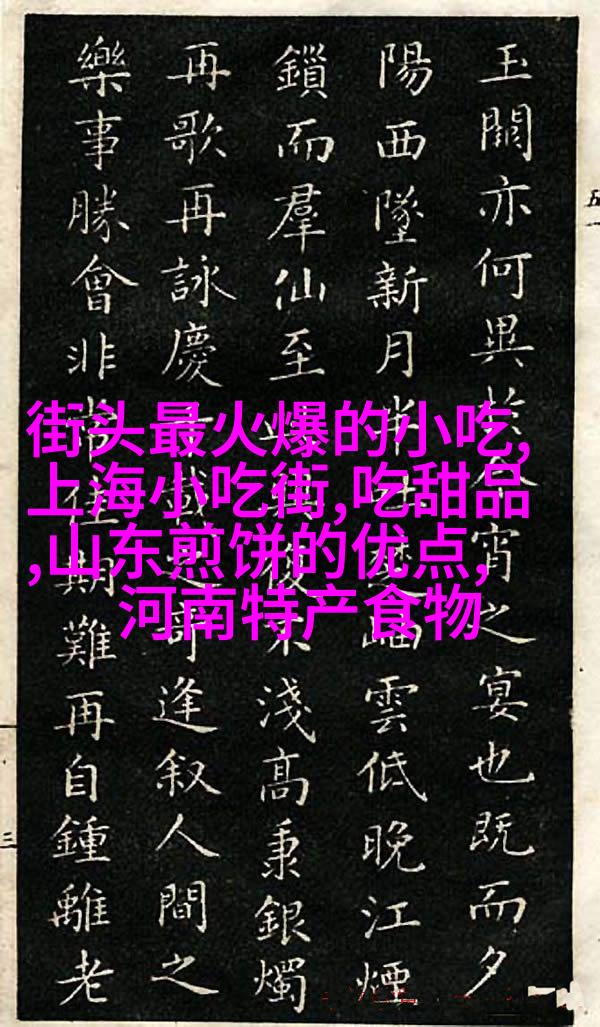 街头最火爆的小吃,
上海小吃街,吃甜品
,山东煎饼的优点,
河南特产食物
玉關亦何異於今宵之宴也既而夕
陽西墜新月半吐楚岫雲低晚江煙
鎖而羣仙至興復不淺高秉銀燭
再歌再詠慶千載之奇逢叙人間之
樂事勝會非常佳期難再自鍾離老
三